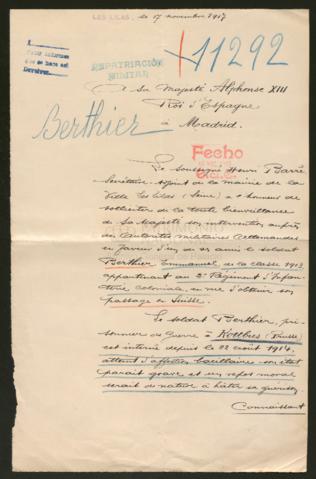 LES LILAS, le 17 novembre 1917
+11292
REPATRIACIÓN
MILITAR
A Sa Majesté Alphonse XIII
Roi d'Espagne
à Madrid.
Berthier
Fecho
Le soussigné Henri Barré
Secrétaire-adjoint de la mairie de la
Ville Les Lilas (Seine) a l'honneur de
solliciter de la toute bienveillance
de Sa Majesté son intervention auprès
des Autorités militaires Allemandes
en faveur d'un de ses amis le soldat
Berthier Emmanuel de la classe 1913
appartenant au 2e Régiment d'Infan-
terie coloniale, en vue d'obtenir son
passage en Suisse.
Le soldat Berthier, pri-
sonnier de Guerre à Kottbus (Prusse)
est interné depuis le 22 août 1914.
atteint d'affection bacillaire son état
paraît grave et un repos moral
serait de nature à hâter sa guérison.
Connaissant